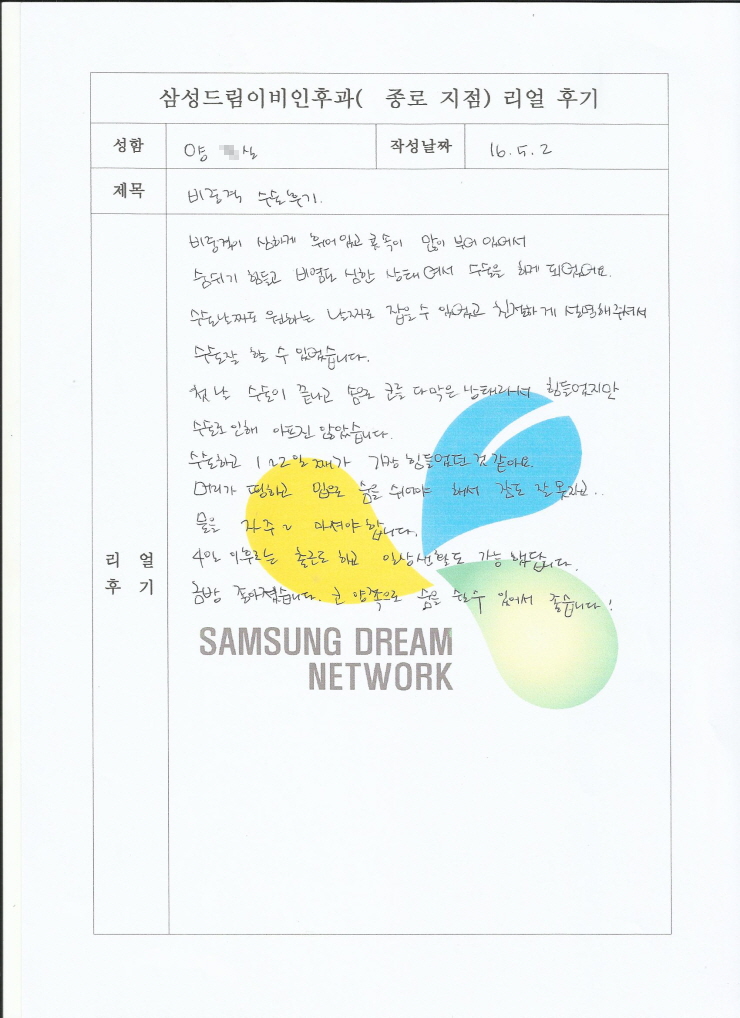 삼성드림이비인후과( 종로 지점) 리얼 후기
성함 양 실 작성날짜 16.5.2
제목 비중격 수술후기.
비중격이 심하게 휘어있고 콧속이 많이 부어 있어서
숨쉬기 힘들고 비염도 심한 상태여서 수술을 하게 되었어요.
수술날짜도 원하는 날짜로 잡을수 있었고 친절하게 설명해주셔서
수술잘 할 수 있었습니다.
첫날 수술이 끝나고 솜으로 코를 다막은 상태라서 힘들었지만
수술로 인해 아프진 않았습니다.
수술하고 1~2일째가 가장 힘들었던 것 같아요.
머리가 띵하고 입으로 숨을 쉬어야 해서 잠도 잘못자고..
물을 자주~ 마셔야 합니다.
4일 이후로는 출근도 하고 일상생활도 가능했답니다.
리얼 후기
금방 좋아졌습니다. 코 양쪽으로 숨을 쉴수 있어서 좋습니다!
SAMSUNG DREAM
NETWORK